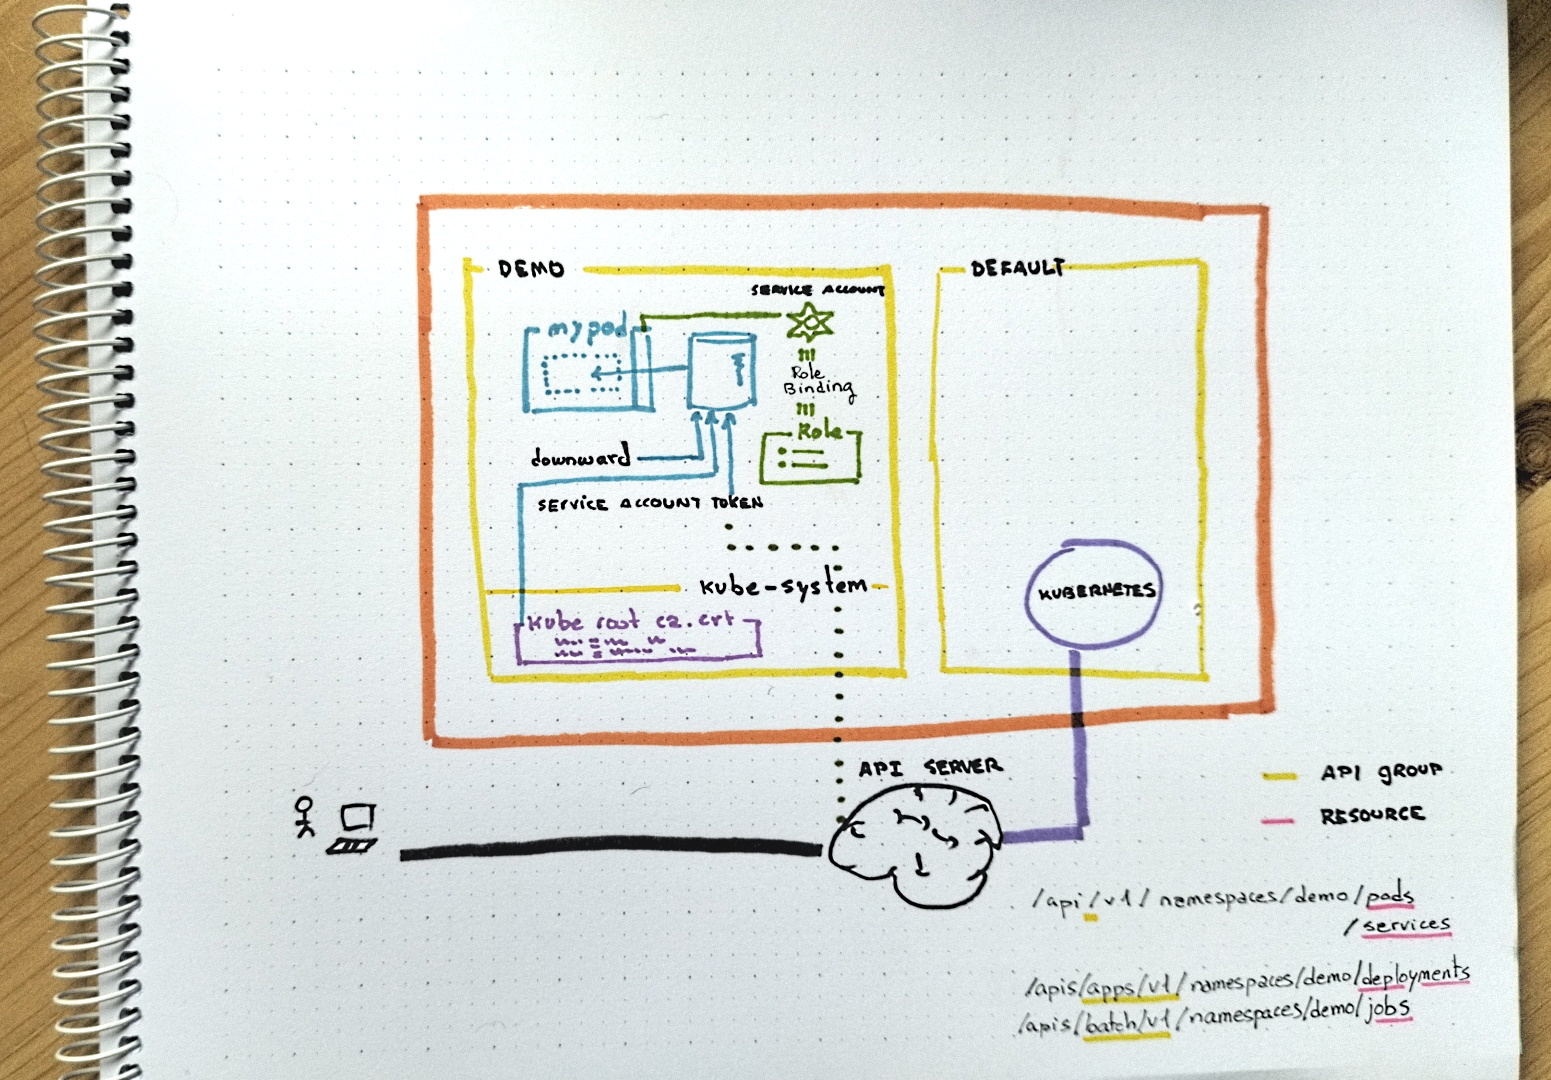 DEMO
DEFAULT
SERVICE ACCOUNT
mypod
Role
Binding
Role
downward
SERVICE ACCOUNT TOKEN
kube-system
Kube root ca.crt
KUBERNETES
API SERVER
API GROUP
RESOURCE
/api/v1/namespaces/demo/pods
/services
/apis/apps/v1/namespaces/demo/deployments
/apis/batch/v1/namespaces/demo/jobs